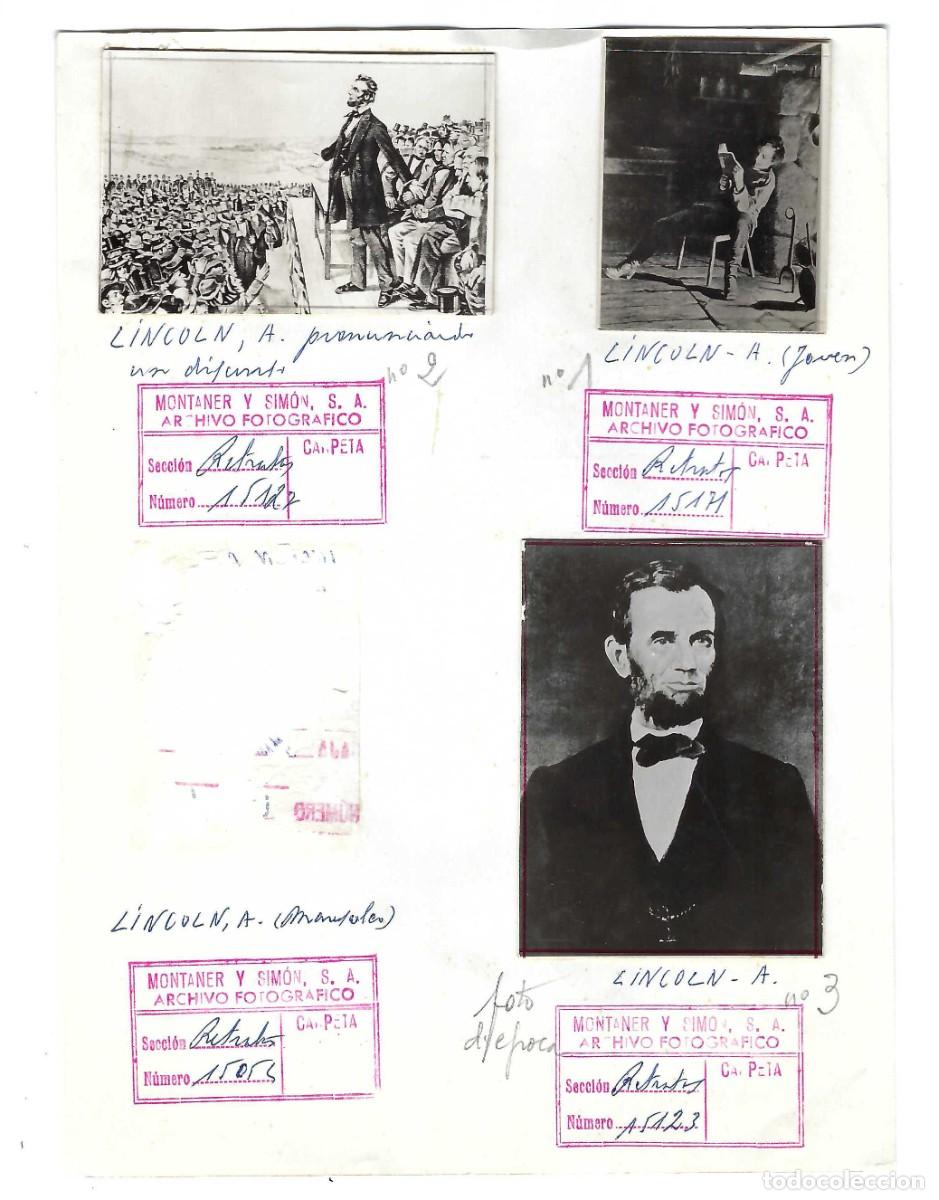 LINCOLN, A. pronunciando
un discurso
nº 2
MONTANER Y SIMÓN, S. A.
ARCHIVO FOTOGRAFICO
CARPETA
Sección Retratos
Número 15127
nº 1
LINCOLN - A. (Joven)
MONTANER Y SIMÓN, S. A.
ARCHIVO FOTOGRAFICO
CARPETA
Sección Retratos
Número 15171
NÚMERO
LINCOLN, A. (Mausoleo)
MONTANER Y SIMÓN, S. A.
ARCHIVO FOTOGRAFICO
CARPETA
Sección Retratos
Número
LINCOLN - A.
nº 3
foto
d'epoca
MONTANER Y SIMÓN, S. A.
ARCHIVO FOTOGRAFICO
CARPETA
Sección Retratos
Número 15123
todocoleccion